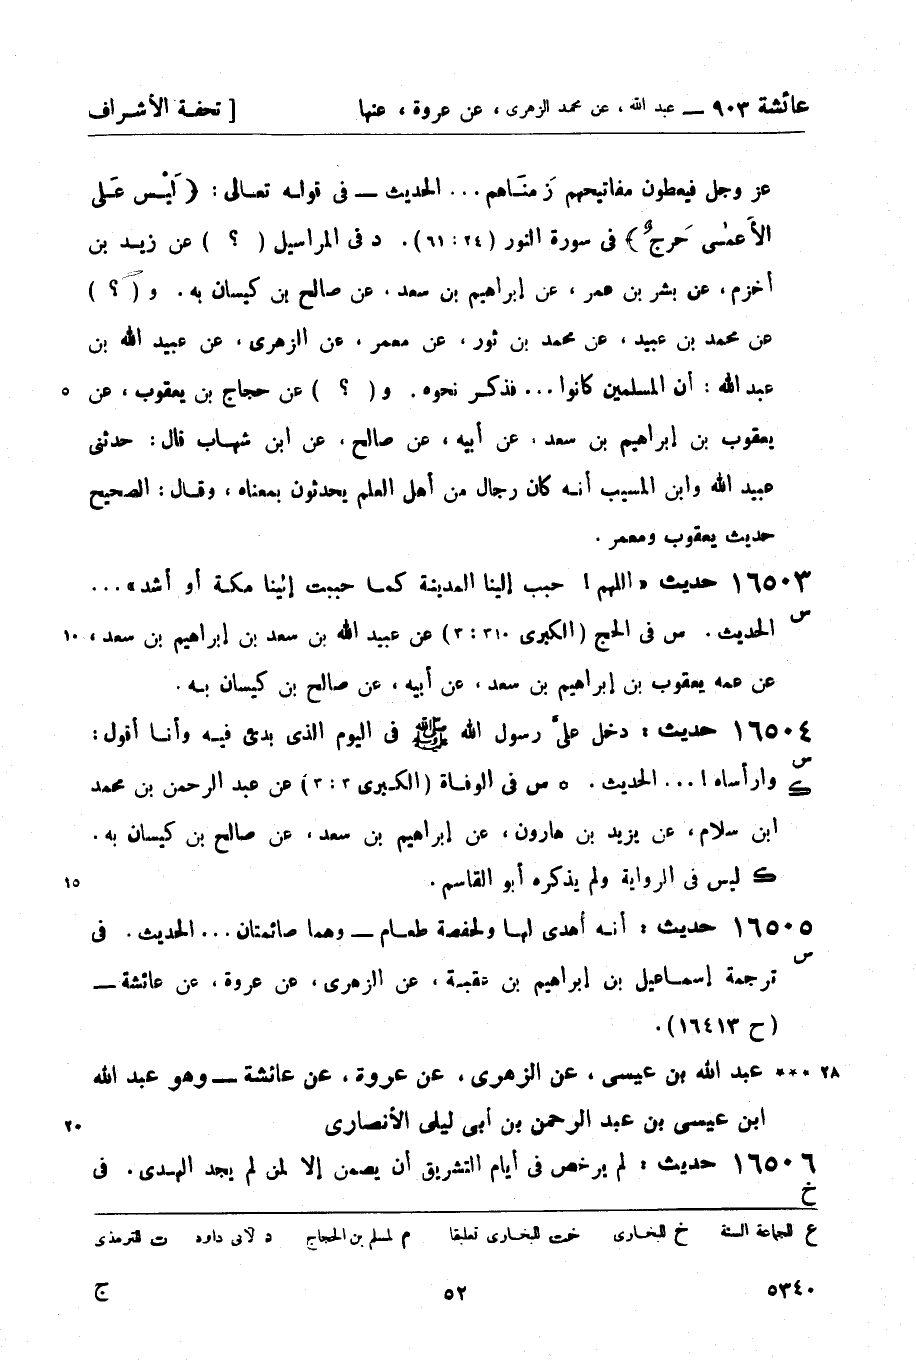 عائشة ٩٠٣ — عبد الله ، عن محمد الزهرى ، عن عروة ، عنها [ تحفة الأشراف
عز وجل فيعطون مفاتيحهم زمناهم ... الحديث — فى قوله تعالى : ﴿ لَيْس عَلى
الأَعمٰى حَرجٌ ﴾ فى سورة النور (٢٤ : ٦١) . د فى المراسيل ( ؟ ) عن زيد بن
أخزم ، عن بشر بن عمر ، عن إبراهيم بن سعد ، عن صالح بن كيسان به . و ( ؟ )
عن محمد بن عبيد ، عن محمد بن ثور ، عن معمر ، عن الزهرى ، عن عبيد الله بن
عبد الله : أن المسلمين كانوا ... فذكر نحوه . و ( ؟ ) عن حجاج بن يعقوب ، عن ٥
يعقوب بن إبراهيم بن سعد ، عن أبيه ، عن صالح ، عن ابن شهاب قال : حدثنى
عبيد الله وابن المسيب أنه كان رجال من أهل العلم يحدثون بمعناه ، وقال : الصحيح
حديث يعقوب ومعمر .
١٦٥٠٣ حديث « اللهم ! حبب إلينا المدينة كما حببت إلينا مكة أو أشد » ...
س الحديث . س فى الحج (الكبرى ٣١٠ : ٣) عن عبيد الله بن سعد بن إبراهيم بن سعد ، ١٠
عن عمه يعقوب بن إبراهيم بن سعد ، عن أبيه ، عن صالح بن كيسان به .
١٦٥٠٤ حديث : دخل علىَّ رسول الله ﷺ فى اليوم الذى بدئ فيه وأنا أقول :
س
ك وارأساه ! ... الحديث . ٥ س فى الوفاة (الكبرى ٣ : ٣) عن عبد الرحمن بن محمد
ابن سلام ، عن يزيد بن هارون ، عن إبراهيم بن سعد ، عن صالح بن كيسان به .
ك ليس فى الرواية ولم يذكره أبو القاسم . ١٥
١٦٥٠٥ حديث : أنه أهدى لها ولحفصة طعام — وهما صائمتان ... الحديث . فى
س
ترجمة إسماعيل بن إبراهيم بن عقبة ، عن الزهرى ، عن عروة ، عن عائشة —
(ح ١٦٤١٣) .
٢٨ *** عبد الله بن عيسى ، عن الزهرى ، عن عروة ، عن عائشة — وهو عبد الله
ابن عيسى بن عبد الرحمن بن أبى ليلى الأنصارى ٢٠
١٦٥٠٦ حديث : لم يرخص فى أيام التشريق أن يصمن إلا لمن لم يجد الهدى . فى
خ
ع للجماعة الستة خ للبخارى خت للبخارى تعليقا م لمسلم بن الحجاج د لأبى داود ت للترمذى
٥٣٤٠ ٥٢ ج